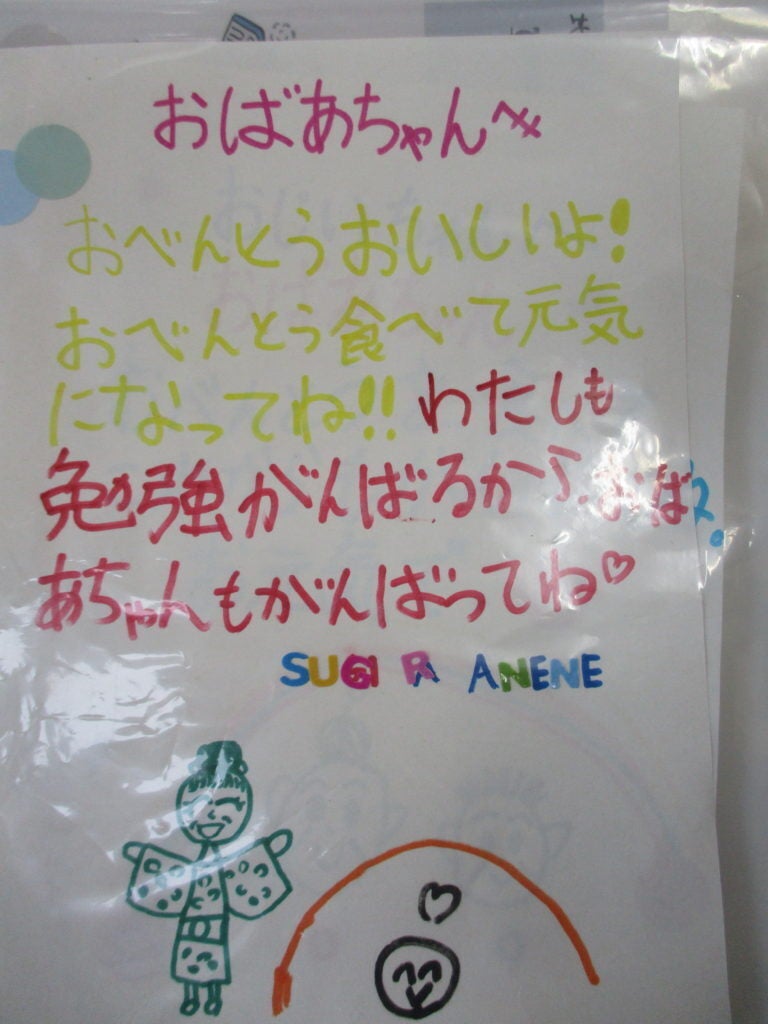 おばあちゃんへ
おべんとうおいしいよ!
おべんとう食べて元気
になってね!! わたしも
勉強がんばるから、おば
あちゃんもがんばってね♡
SUGIRA ANENE